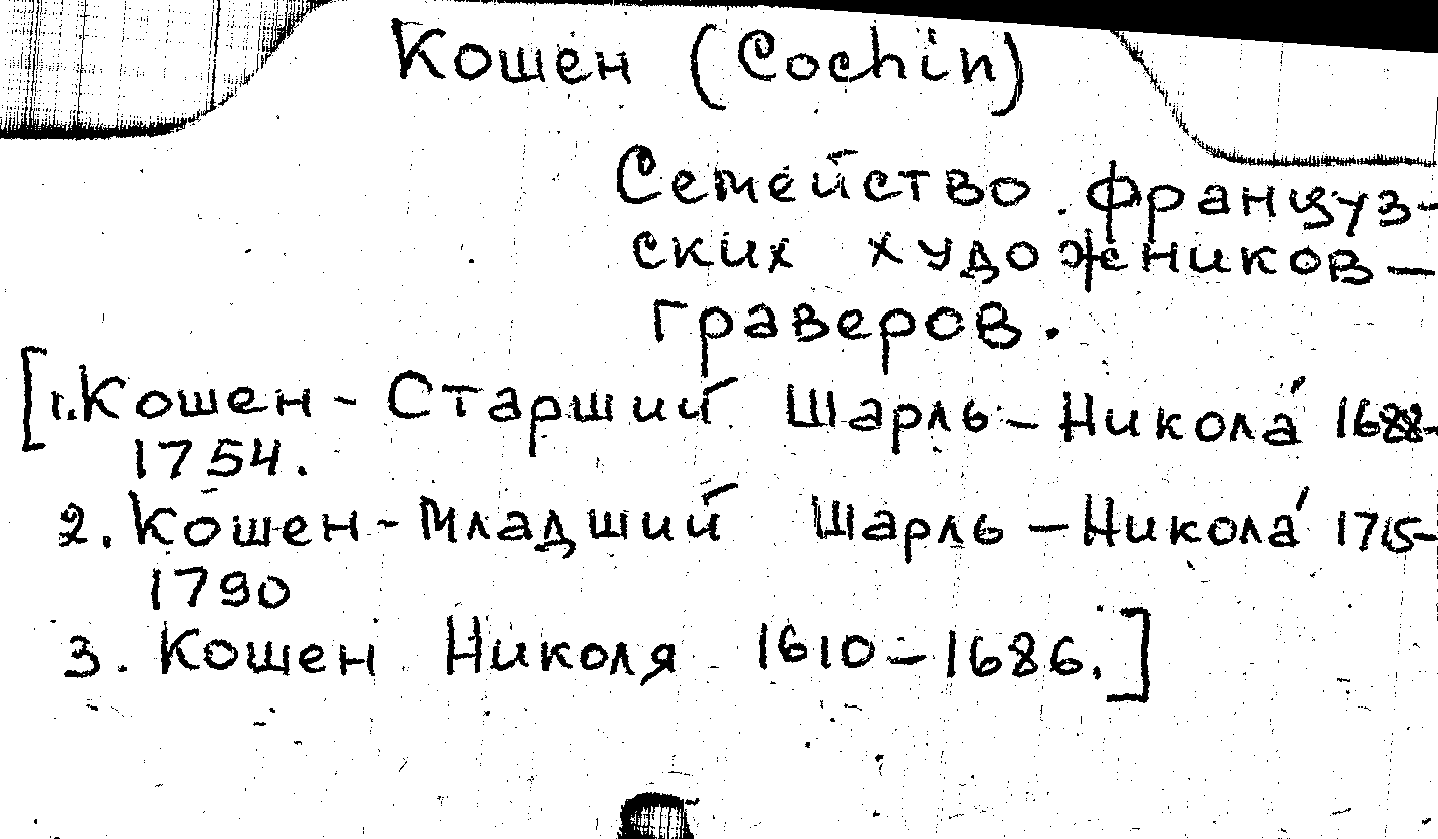 Кошен (Cochin)
Семейство француз-
ских художников -
граверов.
[1. Кошен - Старший Шарль - Никола́ 1688-
1754.
2. Кошен - Младший Шарль - Никола́ 1715-
1790
3. Кошен Николя 1610 - 1686.]